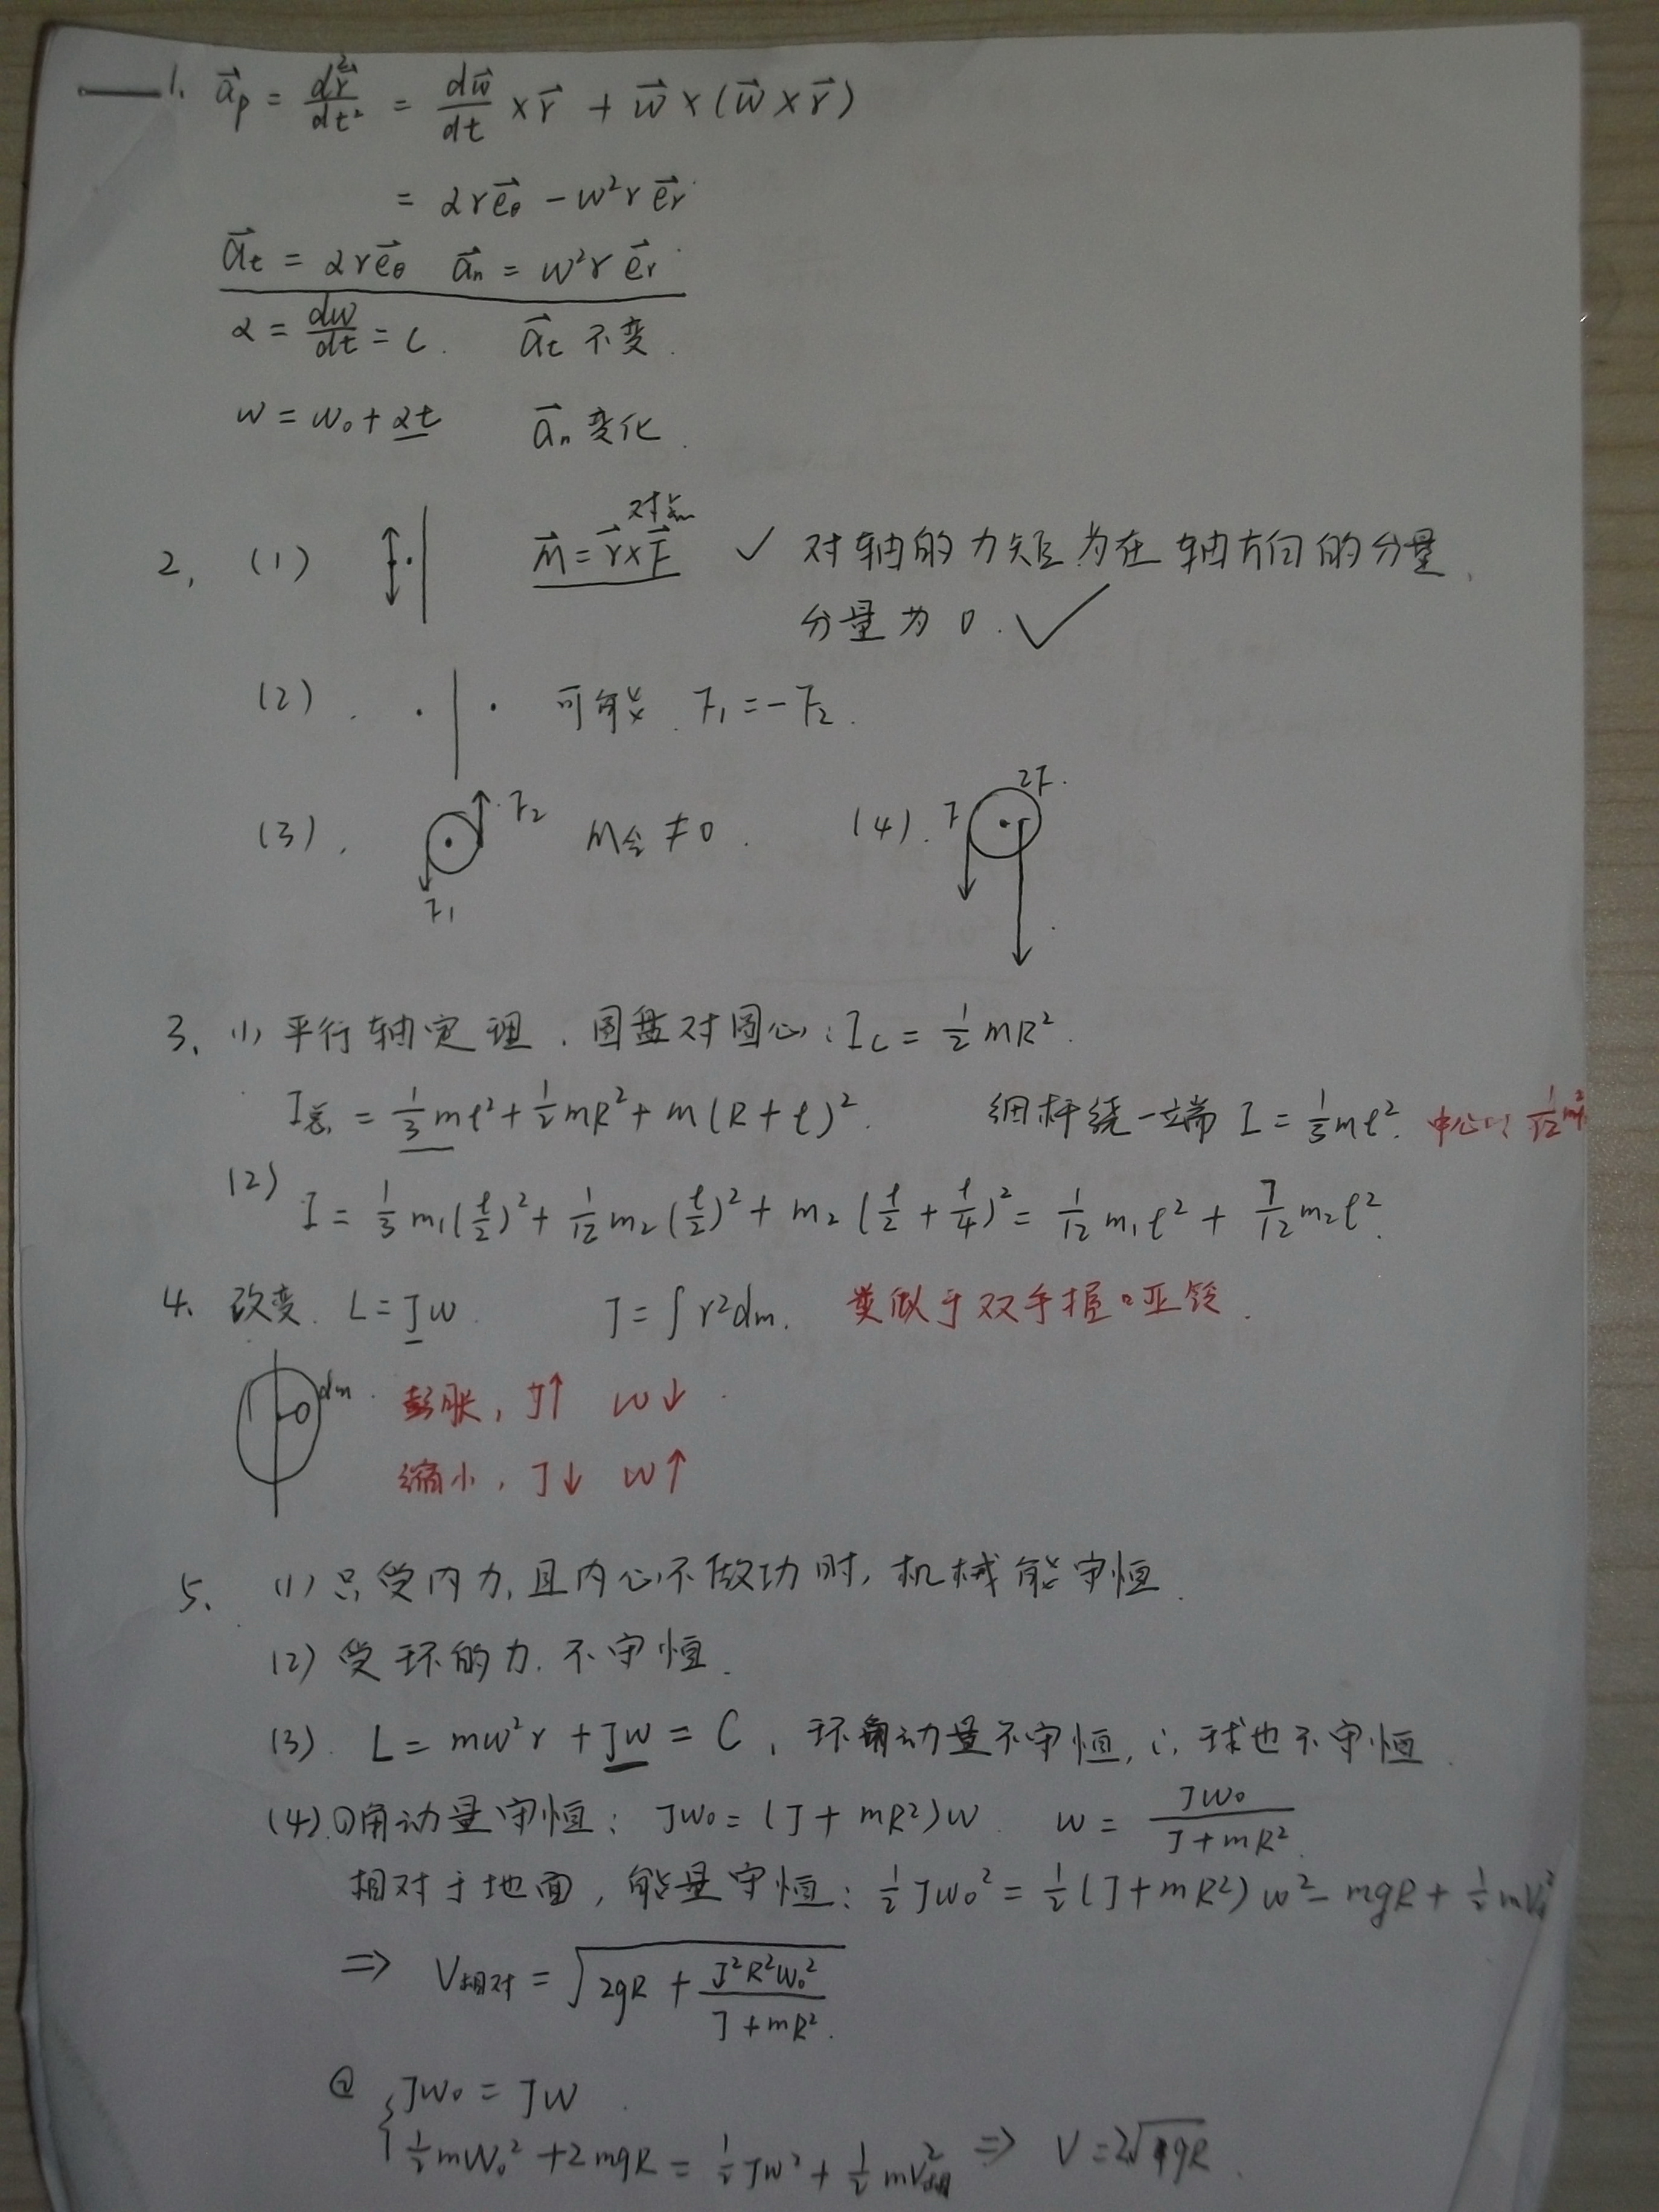 1. a⃗p = d²r⃗/dt² = dω⃗/dt × r⃗ + ω⃗ × (ω⃗ × r⃗)
= αr e⃗θ - ω²r e⃗r
a⃗t = αr e⃗θ a⃗n = ω²r e⃗r
α = dω/dt = C. a⃗t 不变.
ω = ω₀ + αt a⃗n 变化.
对点
2, (1) M⃗ = r⃗ × F⃗ ✓ 对轴的力矩为在轴方向的分量.
分量为 0. ✓
(2). 可能. F₁ = -F₂.
(3). F₁ F₂ M合 ≠ 0. (4). F 2F.
3. (1) 平行轴定理. 圆盘对圆心: Ic = 1/2 mR².
I总 = 1/3 mℓ² + 1/2 mR² + m(R+ℓ)². 细杆绕一端 I = 1/3 mℓ². 中心: 1/12 mℓ²
(2) I = 1/3 m₁(ℓ/2)² + 1/12 m₂(ℓ/2)² + m₂(ℓ/2 + ℓ/4)² = 1/12 m₁ℓ² + 7/12 m₂ℓ².
4. 改变. L = Jω. J = ∫r²dm. 类似于双手握哑铃.
dm. 膨胀, J↑ ω↓.
缩小, J↓ ω↑
5. (1) 只受内力, 且内心不做功时, 机械能守恒.
(2) 受环的力. 不守恒.
(3). L = mω²r + Jω = C, 环角动量不守恒, ∴ 球也不守恒.
(4). ①角动量守恒: Jω₀ = (J + mR²)ω. ω = Jω₀/(J + mR²).
相对于地面, 能量守恒: 1/2 Jω₀² = 1/2 (J + mR²) ω² - mgR + 1/2 mV²
⇒ V相对 = √(2gR + J²R²ω₀²/(J + mR²)).
② { Jω₀ = Jω.
1/2 mω₀² + 2mgR = 1/2 Jω² + 1/2 mV² ⇒ V = 2√gR.